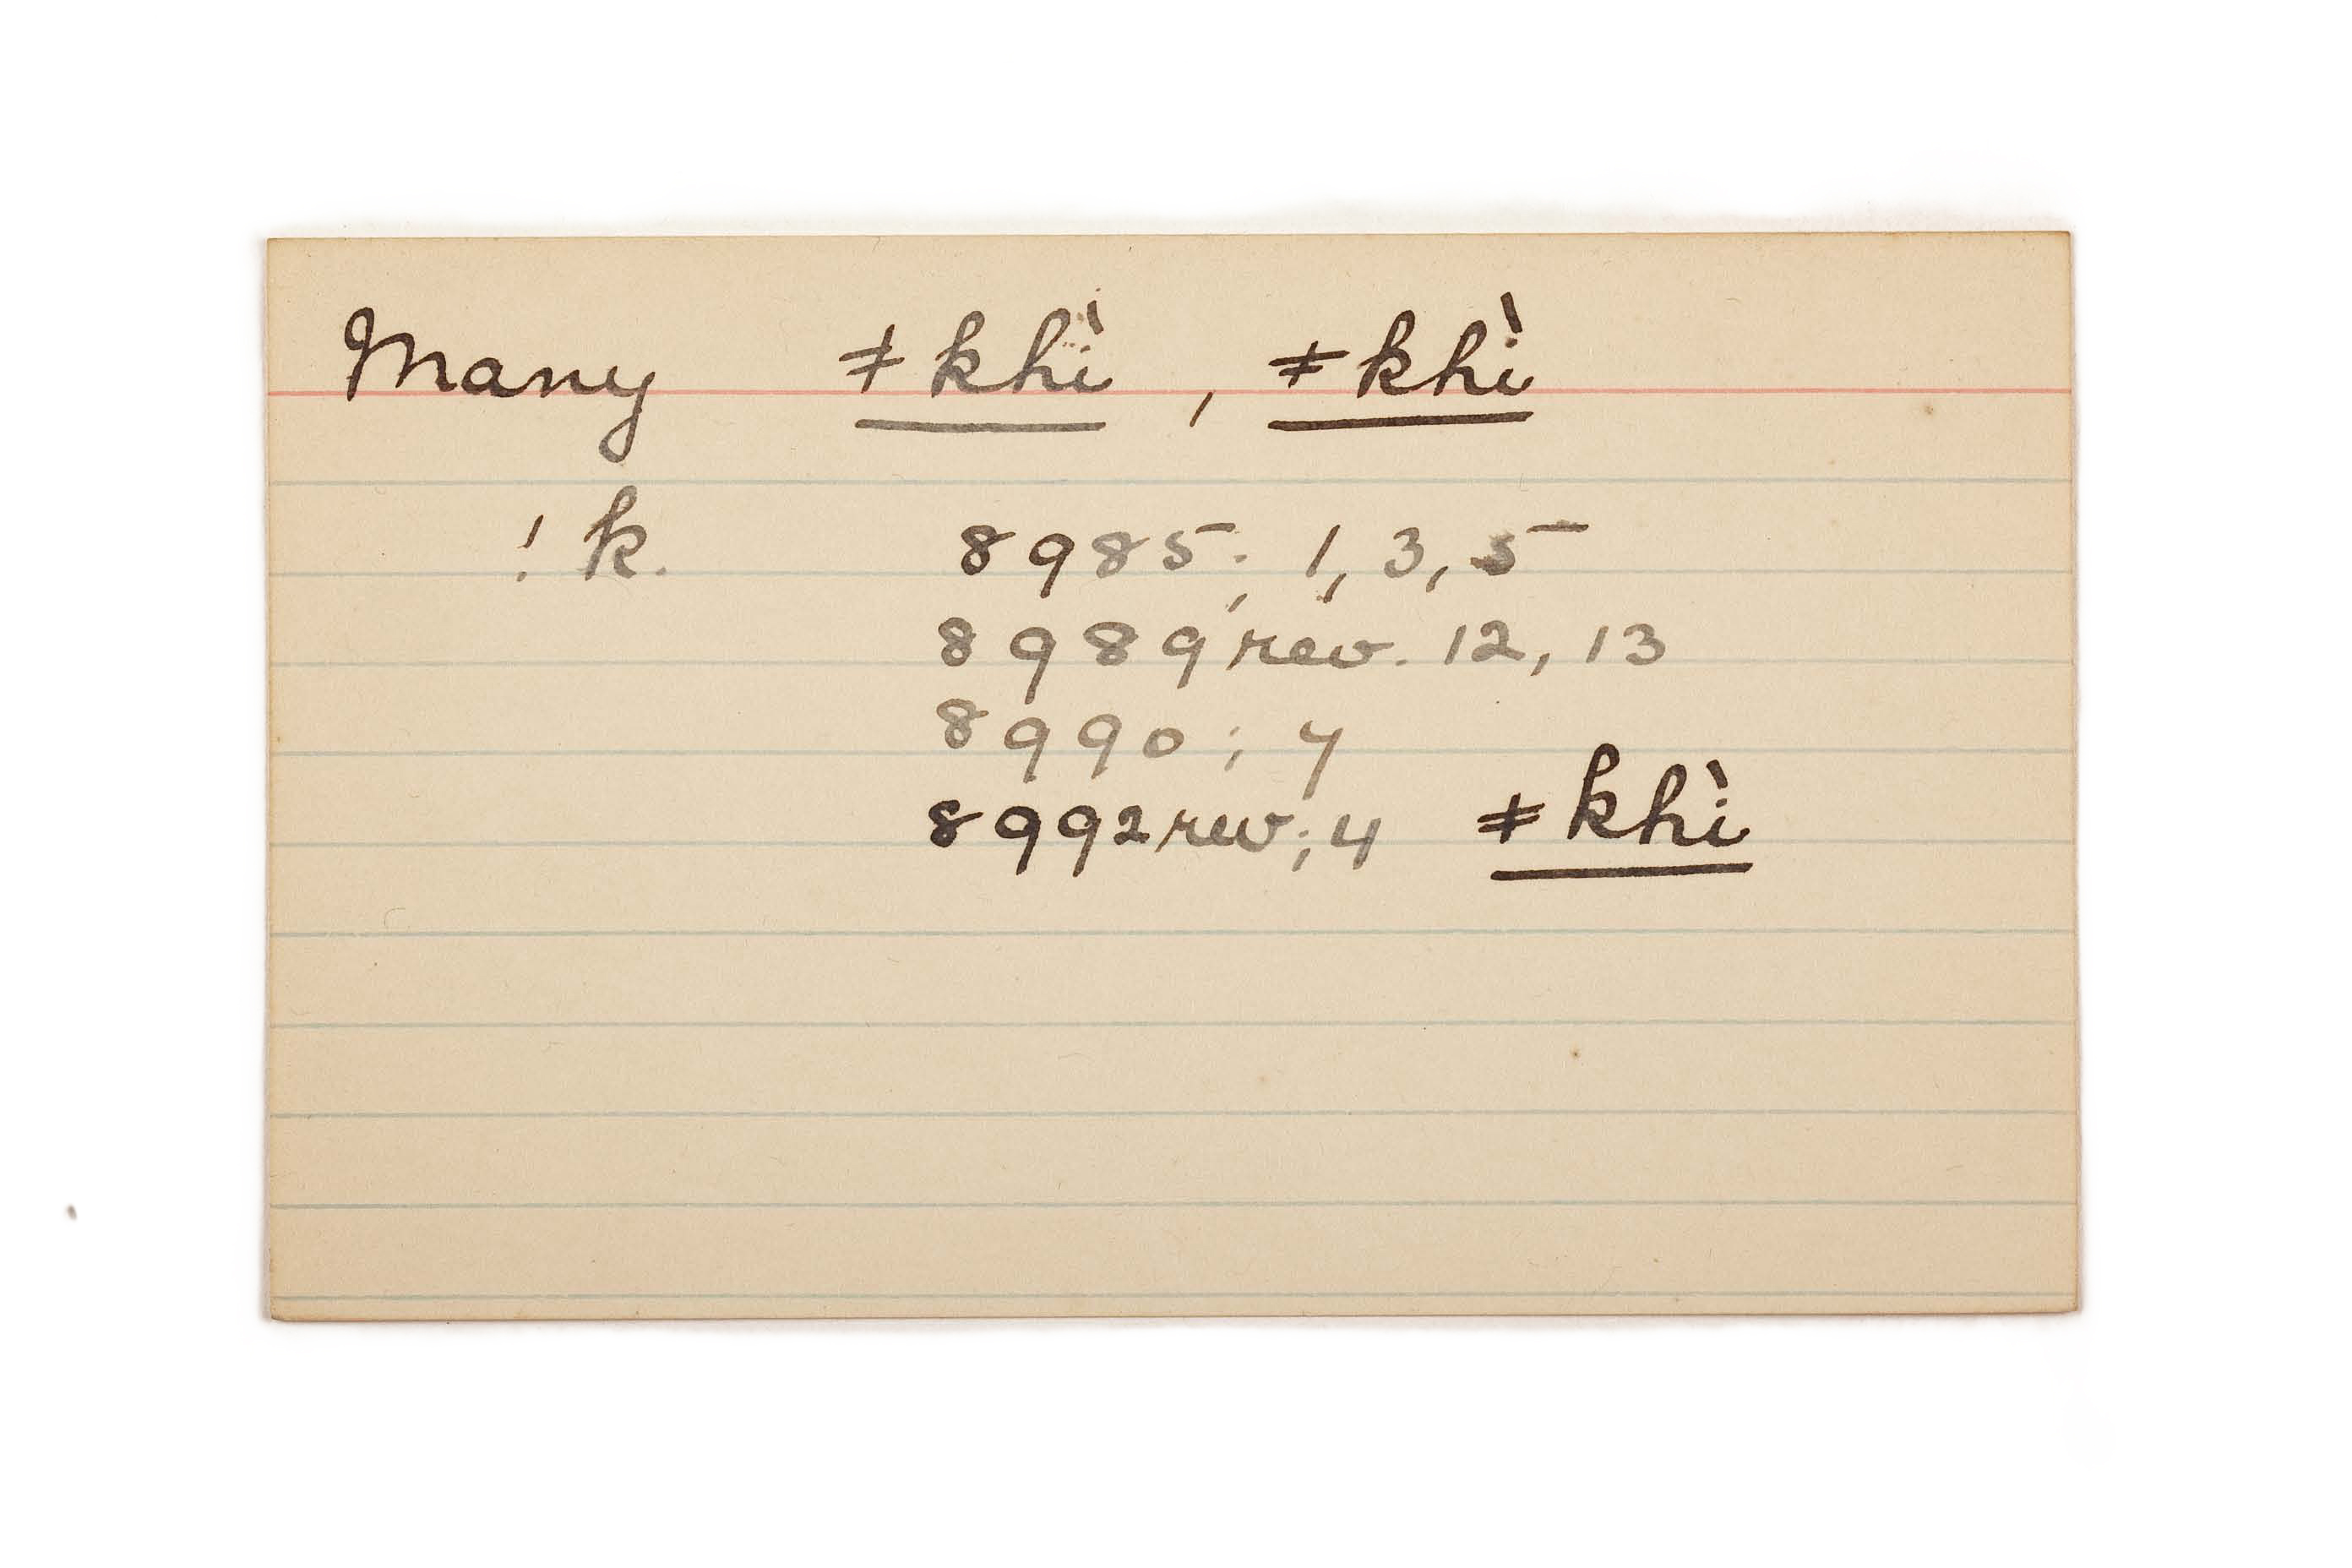 Many ǂkhì, ǂkhì
!k. 8985; 1, 3, 5
8989 rev. 12, 13
8990; 7
8992 rev; 4 ǂkhì